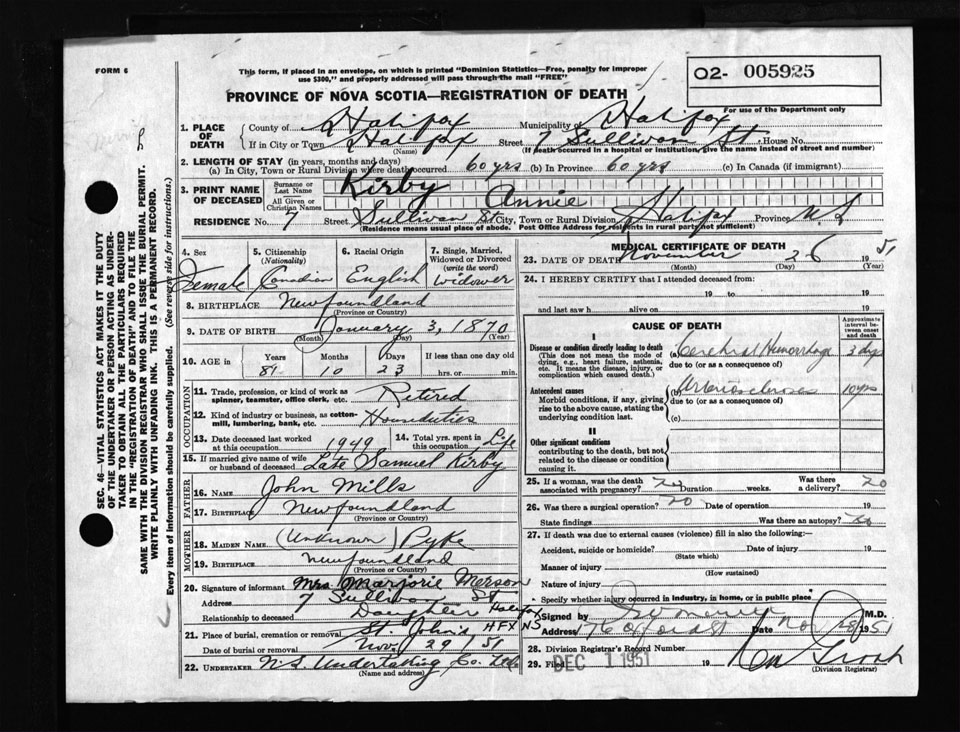 FORM 6
This form, if placed in an envelope, on which is printed "Dominion Statistics—Free, penalty for improper
use $300," and properly addressed will pass through the mail "FREE"
O2- 005925
PROVINCE OF NOVA SCOTIA—REGISTRATION OF DEATH
For use of the Department only
1. PLACE OF DEATH County of Halifax Municipality of Halifax
If in City or Town Halifax (Name) 7 Sullivan St. House No.
(If death occurred in a hospital or institution, give the name instead of street and number)
2. LENGTH OF STAY (in years, months and days)
(a) In City, Town or Rural Division where death occurred 60 yrs (b) In Province 60 yrs (c) In Canada (if immigrant)
3. PRINT NAME OF DECEASED Surname or Last Name Kirby
All Given or Christian Names Annie
RESIDENCE No. 7 Street Sullivan St City, Town or Rural Division Halifax Province N S
(Residence means usual place of abode. Post Office Address for residents in rural parts not sufficient)
4. Sex Female
5. Citizenship (Nationality) Canadian
6. Racial Origin English
7. Single, Married, Widowed or Divorced (write the word) Widower
8. BIRTHPLACE Newfoundland
(Province or Country)
9. DATE OF BIRTH January 3, 1870
(Month) (Day) (Year)
10. AGE in Years 81 Months 10 Days 23 If less than one day old hrs. or min.
OCCUPATION
11. Trade, profession, or kind of work as spinner, teamster, office clerk, etc. Retired
12. Kind of industry or business, as cotton-mill, lumbering, bank, etc.
13. Date deceased last worked at this occupation 1949 14. Total yrs. spent in this occupation Life
15. If married give name of wife or husband of deceased Late Samuel Kirby
FATHER
16. NAME John Mills
17. BIRTHPLACE Newfoundland
(Province or Country)
MOTHER
18. MAIDEN NAME (Unknown) Pyke
19. BIRTHPLACE Newfoundland
(Province or Country)
20. Signature of informant Mrs. Marjorie Merson
Address 7 Sullivan St Halifax
Relationship to deceased Daughter NS
21. Place of burial, cremation or removal St. John's HFX
Date of burial or removal Nov. 29 51
22. UNDERTAKER N.S. Undertaking Co. Ltd.
(Name and address)
MEDICAL CERTIFICATE OF DEATH
23. DATE OF DEATH November 26 1951
(Month) (Day) (Year)
24. I HEREBY CERTIFY that I attended deceased from
19 to 19
and last saw h alive on 19
CAUSE OF DEATH
Approximate interval between onset and death
I
Disease or condition directly leading to death
(This does not mean the mode of dying, e.g., heart failure, asthenia, etc. It means the disease, injury, or complication which caused death.)
(a) Cerebral Hemorrhage 3 dys
due to (or as a consequence of)
Antecedent causes
Morbid conditions, if any, giving rise to the above cause, stating the underlying condition last.
(b) Arteriosclerosis 10 yrs
due to (or as a consequence of)
(c)
II
Other significant conditions
contributing to the death, but not related to the disease or condition causing it.
25. If a woman, was the death associated with pregnancy? no Duration weeks. Was there a delivery? no
26. Was there a surgical operation? no Date of operation 19
State findings Was there an autopsy? no
27. If death was due to external causes (violence) fill in also the following:—
Accident, suicide or homicide? Date of injury 19
(State which)
Manner of injury
(How sustained)
Nature of injury
Specify whether injury occurred in industry, in home, or in public place
Signed by M.D.
Address Date Nov 28 1951
28. Division Registrar's Record Number
29. Filed DEC 1 1951 19
(Division Registrar)
SEC. 46—VITAL STATISTICS ACT MAKES IT THE DUTY
OF THE UNDERTAKER OR PERSON ACTING AS UNDER-
TAKER TO OBTAIN ALL THE PARTICULARS REQUIRED
IN THE "REGISTRATION OF DEATH" AND TO FILE THE
SAME WITH THE DIVISION REGISTRAR WHO SHALL ISSUE THE BURIAL PERMIT.
WRITE PLAINLY WITH UNFADING INK. THIS IS A PERMANENT RECORD.
Every item of information should be carefully supplied. (See reverse side for instructions).